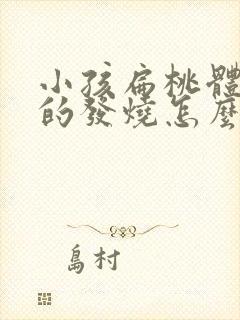 小孩扁桃體
的發燒怎麼
島村